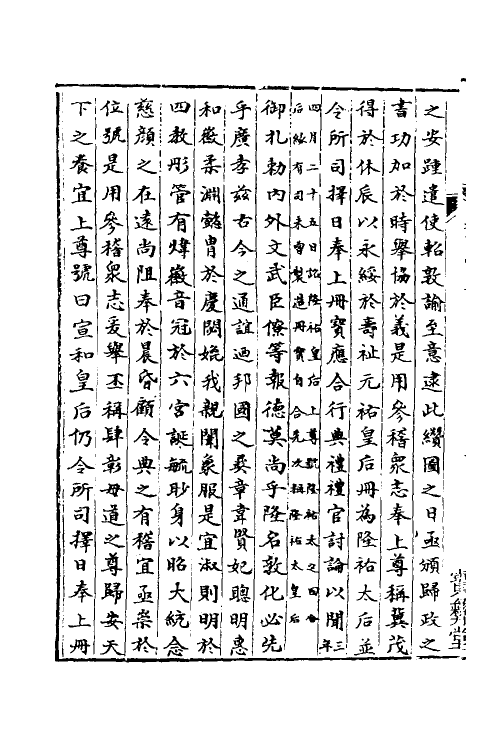 之安踵遣使軺敦諭至意逮此纘圖之日亟頒歸政之
書功加於時舉協於義是用參稽衆志奉上尊稱冀茂
得於休辰以永綏於壽祉元祐皇后冊為隆祐太后並
令所司擇日奉上冊寶應合行典禮禮官討論以聞三年
四月二十五日詔隆祐皇后上尊號隆祐太后今
后緣有司未曾製造冊寶自合先次稱隆祐太皇后
御札勅内外文武臣僚等報德莫尚乎隆名敦化必先
乎廣孝兹古今之通誼迺邦國之彞章韋賢妃聰明惠
和徽柔淵懿胄於慶閥媲我親闈象服是宜淑則明於
四教彤管有煒徽音冠於六宮誕毓眇身以昭大統念
慈顔之在遠尚阻奉於晨昏顧令典之有稽宜亟崇於
位號是用參稽衆志爰舉丕稱肆彰母道之尊歸安天
下之養宜上尊號曰宣和皇后仍令所司擇日奉上冊